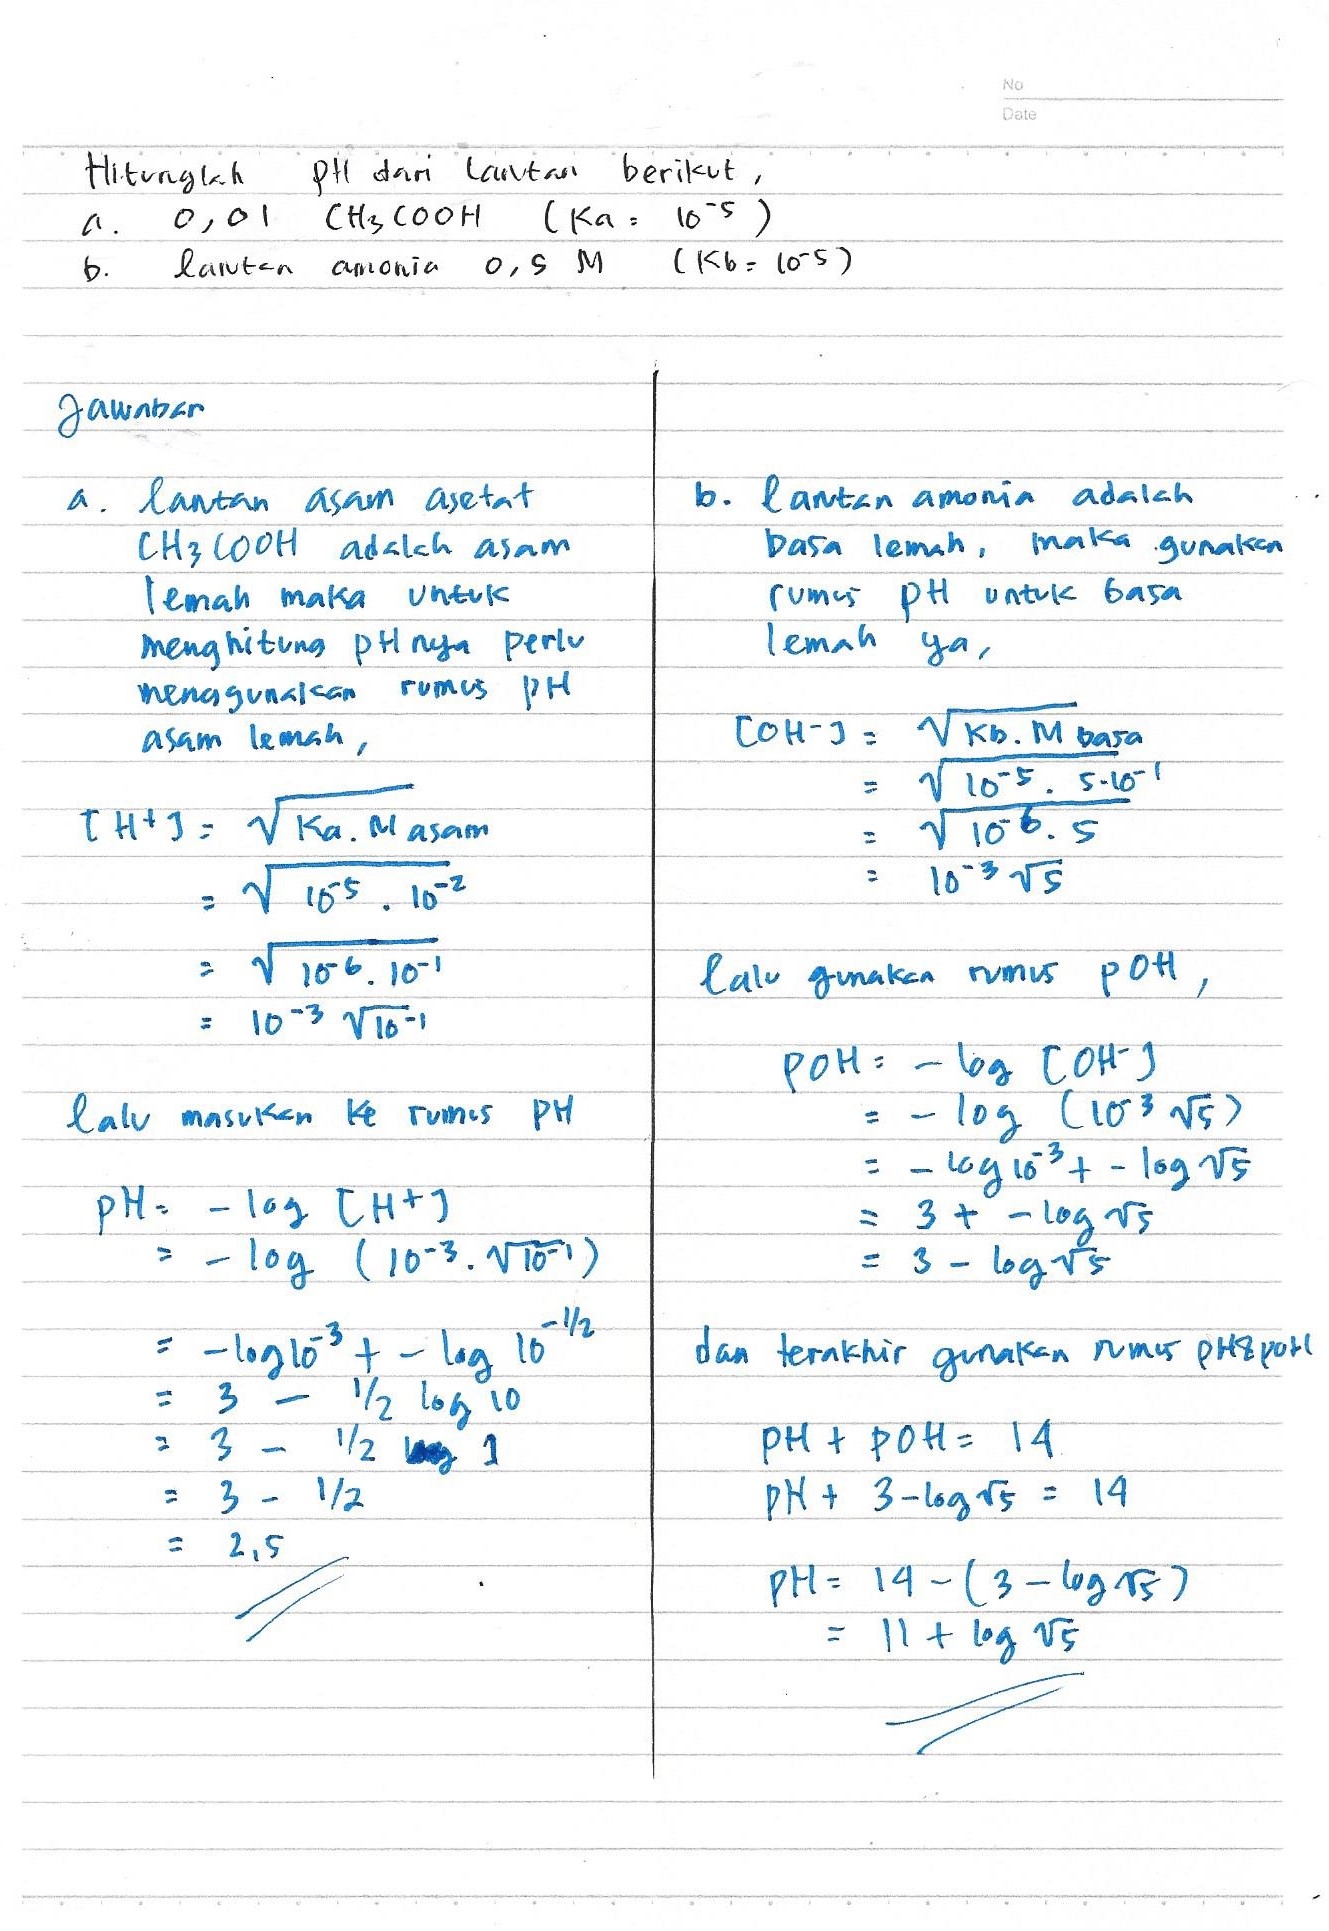 No
Date
Hitunglah pH dari larutan berikut,
a. 0,01 CH₃COOH (Ka = 10⁻⁵)
b. larutan amonia 0,5 M (Kb = 10⁻⁵)
Jawaban
a. larutan asam asetat
CH₃COOH adalah asam
lemah maka untuk
menghitung pHnya perlu
menggunakan rumus pH
asam lemah,
[H+] = √Ka. M asam
= √10⁻⁵ . 10⁻²
= √10⁻⁶ . 10⁻¹
= 10⁻³ √10⁻¹
lalu masukan ke rumus pH
pH = - log [H+]
= - log (10⁻³ . √10⁻¹)
= -log10⁻³ + - log 10⁻¹/²
= 3 - 1/2 log 10
= 3 - 1/2 1
= 3 - 1/2
= 2,5
b. larutan amonia adalah
basa lemah, maka gunakan
rumus pH untuk basa
lemah ya,
[OH-] = √Kb. M basa
= √10⁻⁵ . 5.10⁻¹
= √10⁻⁶ . 5
= 10⁻³ √5
lalu gunakan rumus pOH,
pOH = - log [OH-]
= - log (10⁻³ √5)
= - log 10⁻³ + - log √5
= 3 + - log √5
= 3 - log √5
dan terakhir gunakan rumus pH&pOH
pH + pOH = 14
pH + 3-log √5 = 14
pH = 14 - (3 - log √5)
= 11 + log √5